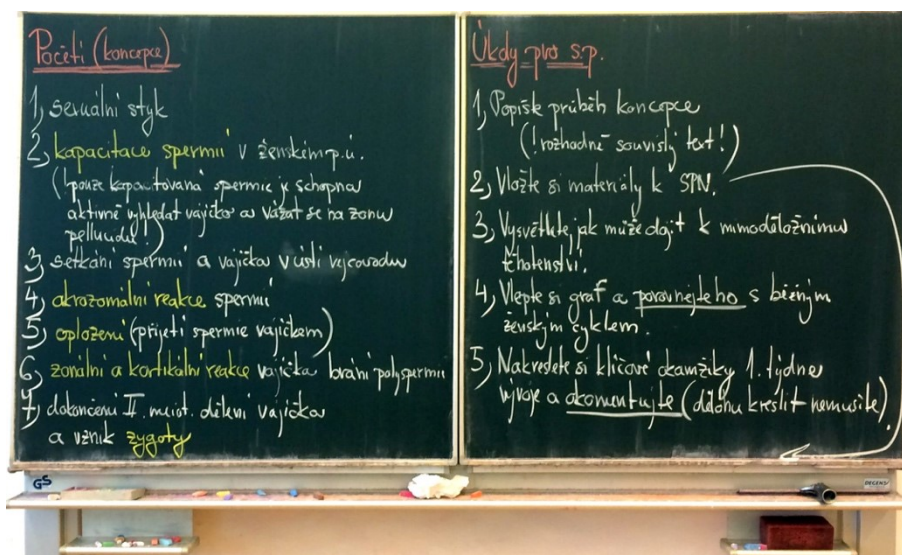 Početí (koncepce)
1, sexuální styk
2, kapacitace spermií v ženském p.ú.
(! pouze kapacitovaná spermie je schopna
aktivně vyhledat vajíčko a vázat se na zonu
pellucidu!)
3, setkání spermií a vajíčka v ústí vejcovodu
4, akrozomální reakce spermií
5, oplození (přijetí spermie vajíčkem)
6, zonální a kortikální reakce vajíčka brání polyspermii
7, dokončení II. meiot. dělení vajíčka
a vznik zygoty
Úkoly pro s.p.
1, Popište průběh koncepce
(! rozhodně souvislý text!)
2, Vložte si materiály k SPN.
3, Vysvětlete, jak může dojít k mimoděložnímu
těhotenství.
4, Vlepte si graf a porovnejte ho s běžným
ženským cyklem.
5, Nakreslete si klíčové okamžiky 1. týdne
vývoje a okomentujte (dělohu kreslit nemusíte).
GS